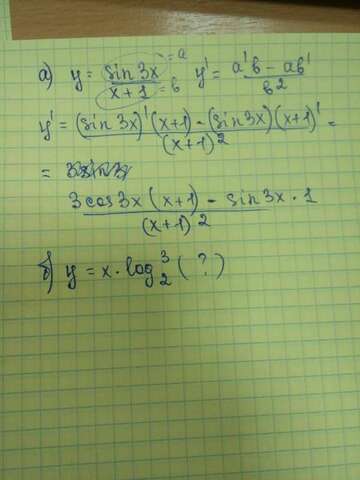 а) y = sin 3x / x + 1 = a = b y' = a'b - ab' / b²
y' = (sin 3x)'(x+1) - (sin 3x)(x+1)' / (x+1)² =
=
3 cos 3x (x+1) - sin 3x · 1 / (x+1)²
б) y = x · log₂³ ( ? )